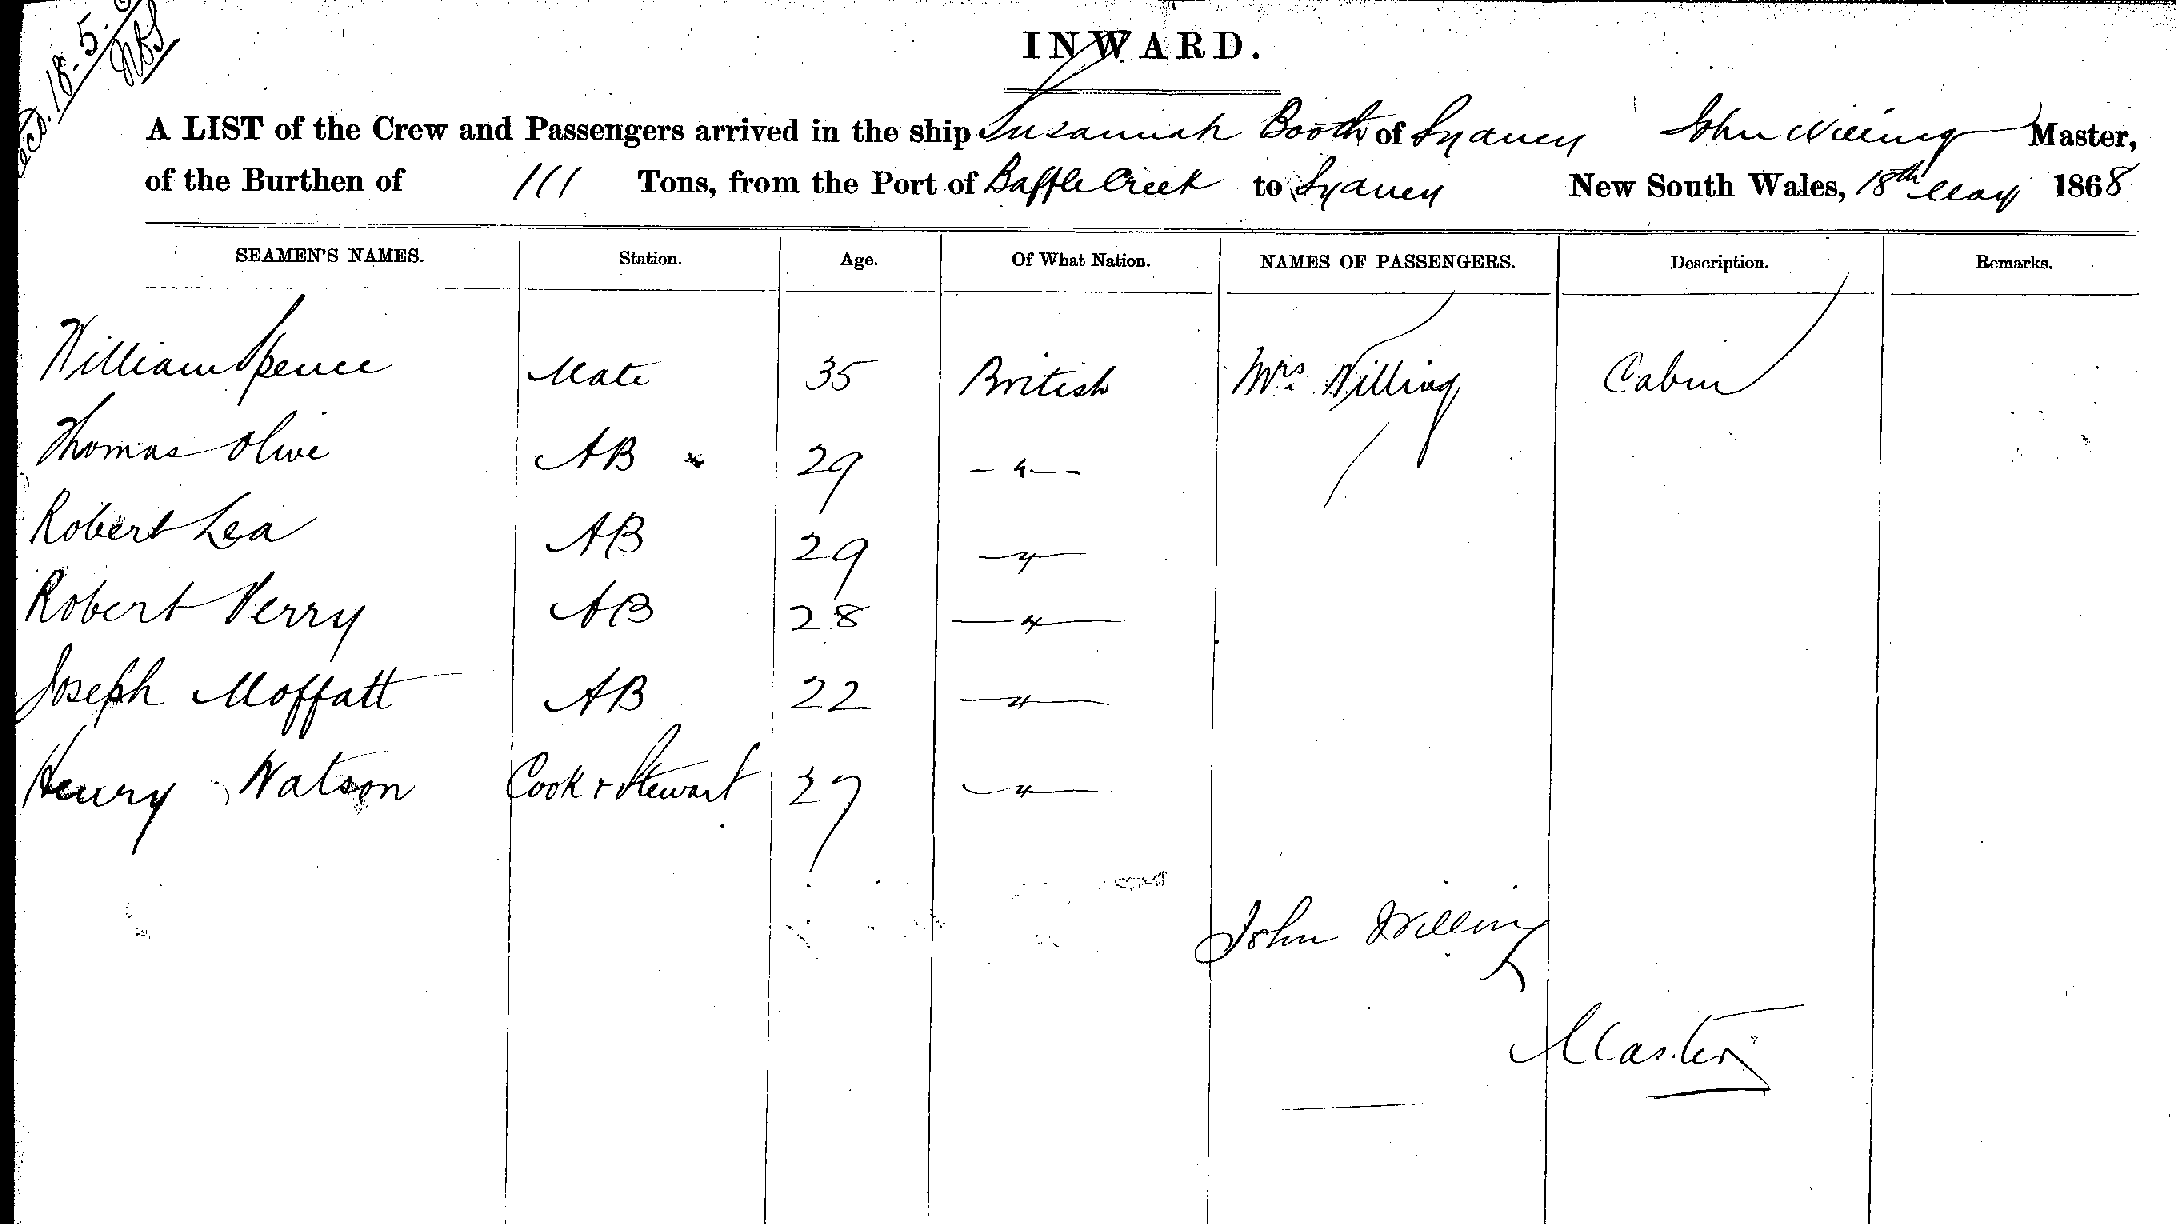 18-5-
INWARD.
A LIST of the Crew and Passengers arrived in the ship Susannah Booth of Sydney John Willing Master,
of the Burthen of 111 Tons, from the Port of Baffle Creek to Sydney New South Wales, 18th May 1868
SEAMEN'S NAMES. Station. Age. Of What Nation. NAMES OF PASSENGERS. Description. Remarks.
William Spence Mate 35 British Mrs Willing Cabin
Thomas Olive AB 29 - " -
Robert Lea AB 29 - " -
Robert Verry AB 28 - " -
Joseph Moffatt AB 22 - " -
Henry Watson Cook & Stewart 27 - " -
John Willing
Master